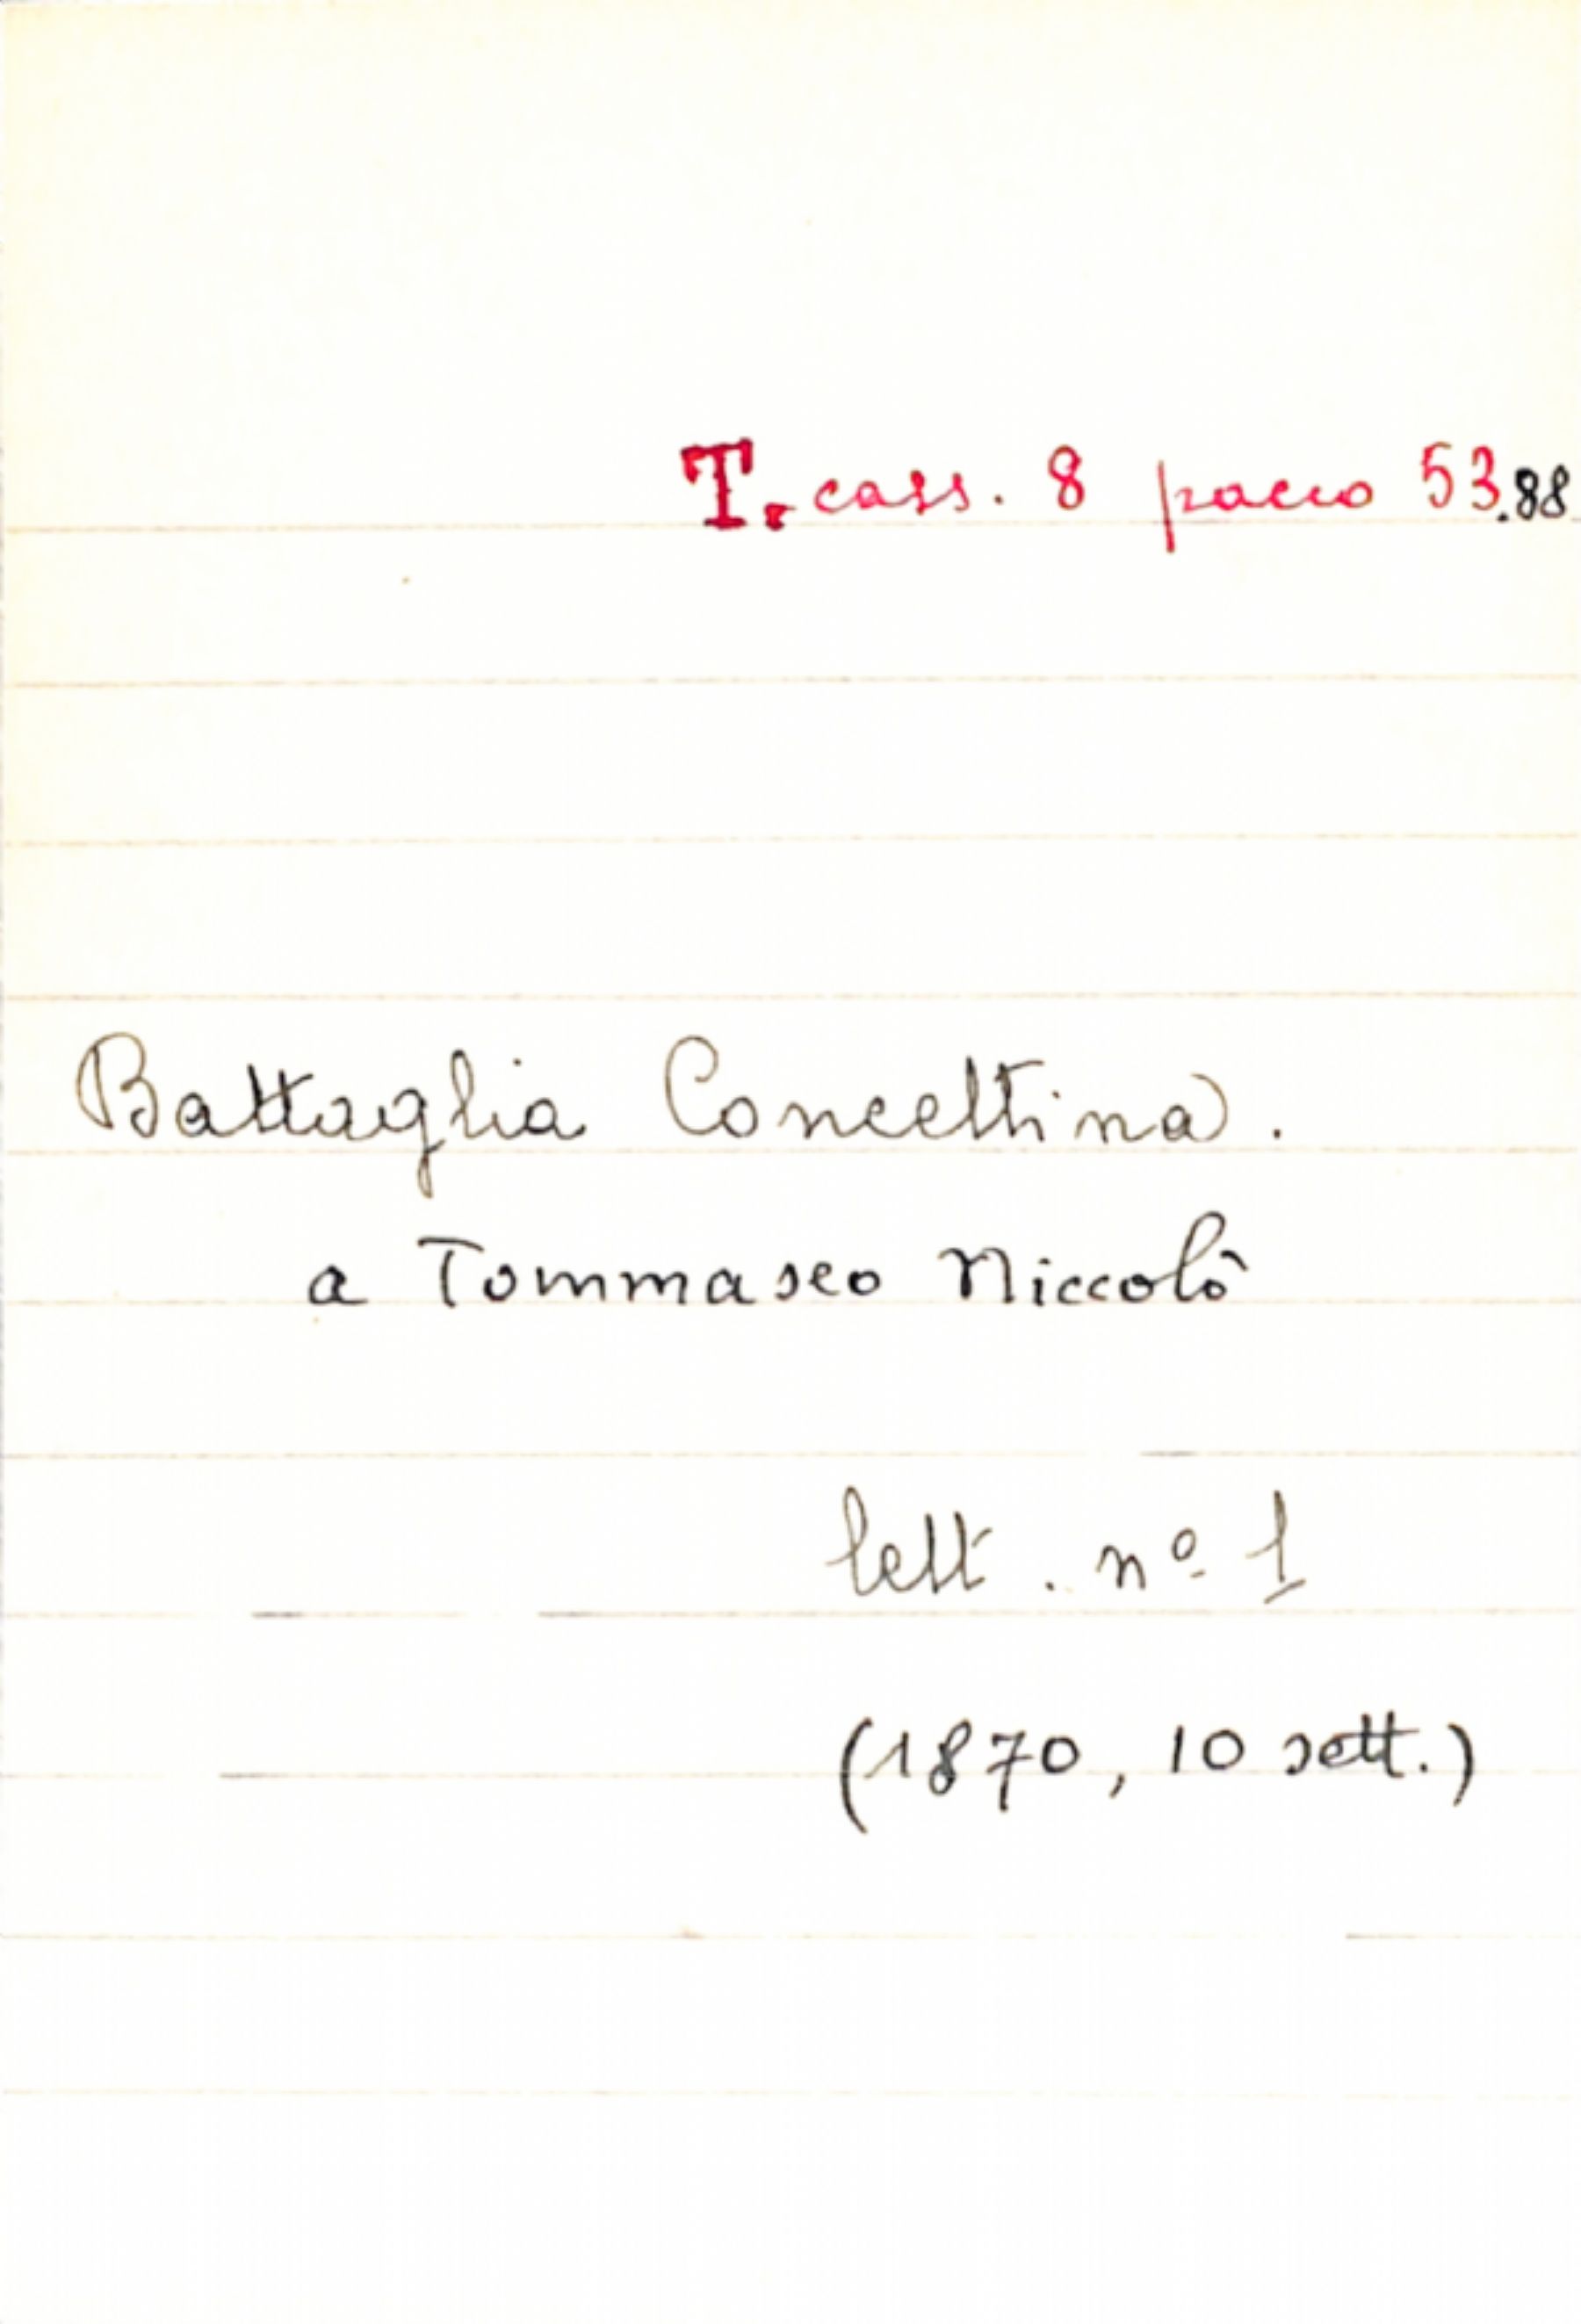 T. cass. 8 pacco 53.88
Battaglia Concettina.
a Tommaseo Niccolò
lett. nº 1
(1870, 10 sett.)